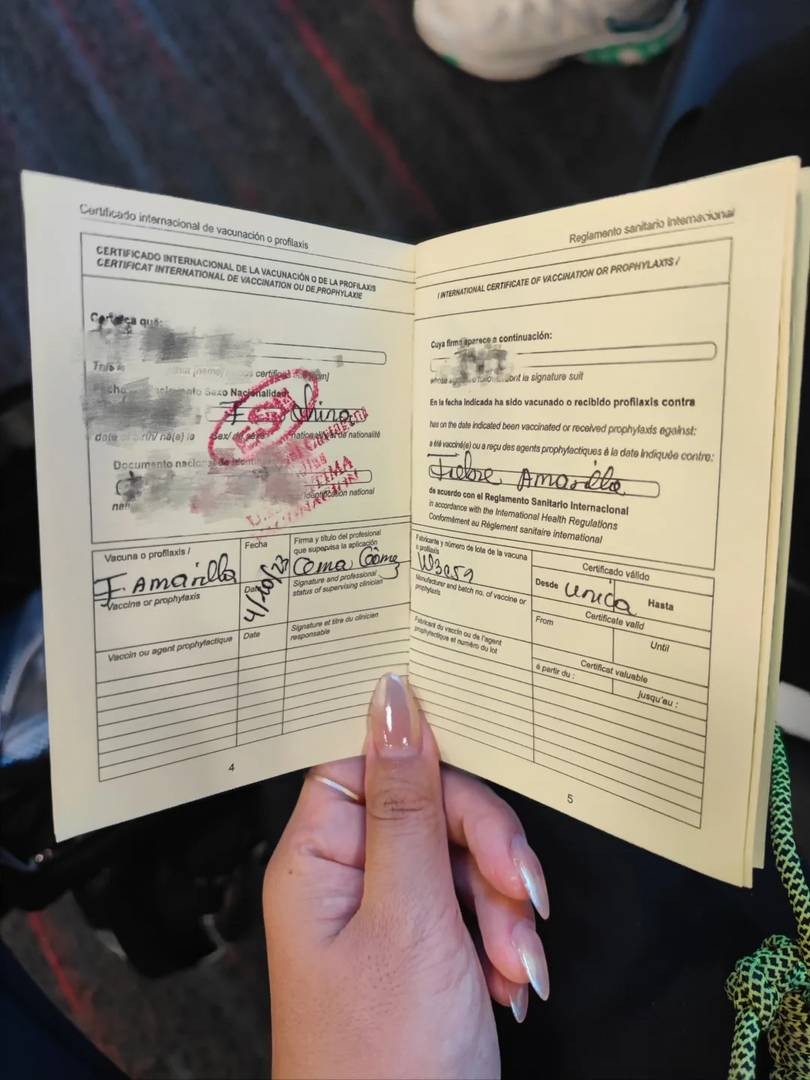 Certificado internacional de vacunación o profilaxis
CERTIFICADO INTERNACIONAL DE LA VACUNACIÓN O DE LA PROFILAXIS
CERTIFICAT INTERNATIONAL DE VACCINATION OU DE PROPHYLAXIE
Certifica que:
This is [name]
Fecha Sexo Nacionalidad
F China
date of birth/ né(e) le Sex/ nationalité
Documento nacional
identification national
Vacuna o profilaxis /
F. Amarilla
Vaccine or prophylaxis
Vaccin ou agent prophylactique
Fecha
4/20/23
Date
Date
Firma y título del profesional
que supervisa la aplicación
Signature and professional
status of supervising clinician
Signature et titre du clinicien
responsable
4
Reglamento sanitario internacional
/ INTERNATIONAL CERTIFICATE OF VACCINATION OR PROPHYLAXIS /
Cuya firma aparece a continuación:
whose signature suit
En la fecha indicada ha sido vacunado o recibido profilaxis contra
has on the date indicated been vaccinated or received prophylaxis against:
a été vacciné(e) ou a reçu des agents prophylactiques à la date indiquée contre:
Fiebre Amarilla
de acuerdo con el Reglamento Sanitario Internacional
in accordance with the International Health Regulations
Conformément au Règlement sanitaire international
Fabricante y número de lote de la vacuna
o profilaxis
W3059
Manufacturer and batch no. of vaccine or
prophylaxis
Fabricant du vaccin ou de l'agent
prophylactique et numéro du lot
Certificado válido
Desde única Hasta
Certificate valid
From
Until
Certificat valuable
à partir du :
jusqu'au :
5